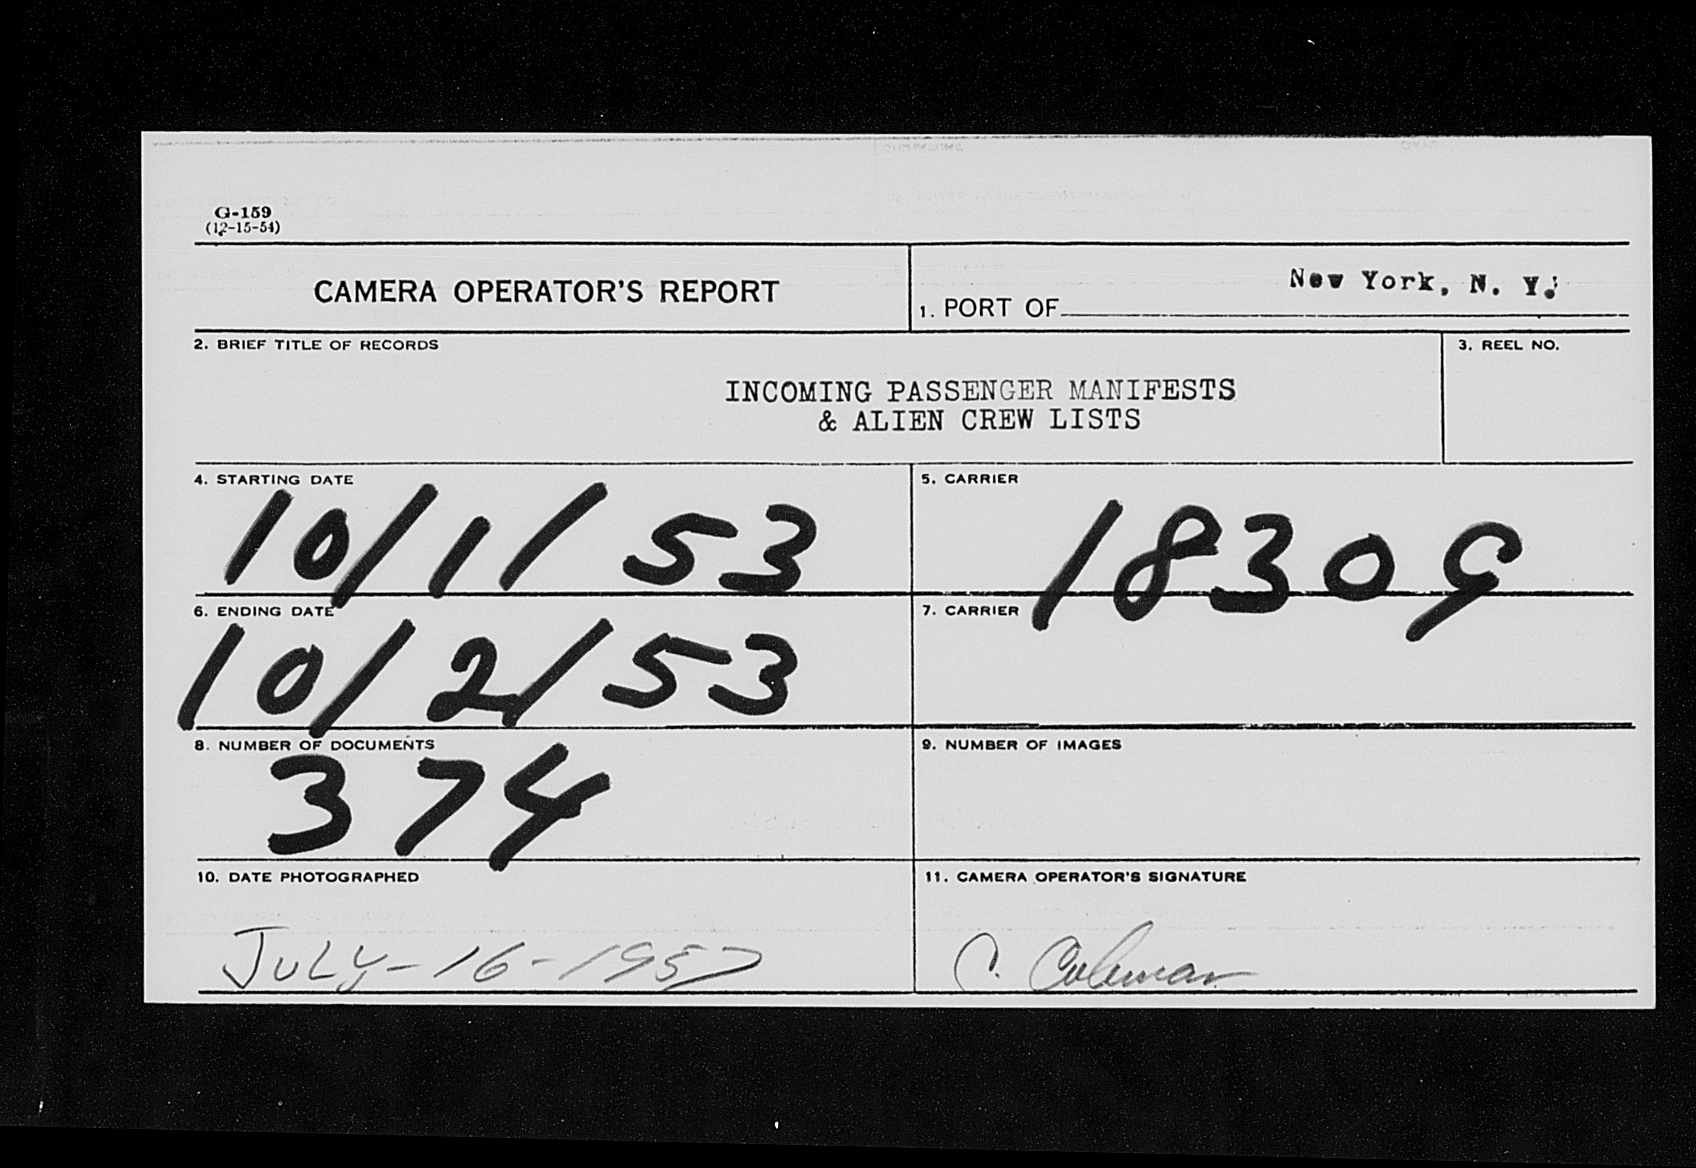 G-159
(12-15-54)
CAMERA OPERATOR'S REPORT
1. PORT OF New York, N. Y.
2. BRIEF TITLE OF RECORDS
INCOMING PASSENGER MANIFESTS
& ALIEN CREW LISTS
3. REEL NO.
4. STARTING DATE
10/1/53
5. CARRIER
18309
6. ENDING DATE
10/2/53
7. CARRIER
8. NUMBER OF DOCUMENTS
374
9. NUMBER OF IMAGES
10. DATE PHOTOGRAPHED
JULY-16-1957
11. CAMERA OPERATOR'S SIGNATURE
C. Coleman